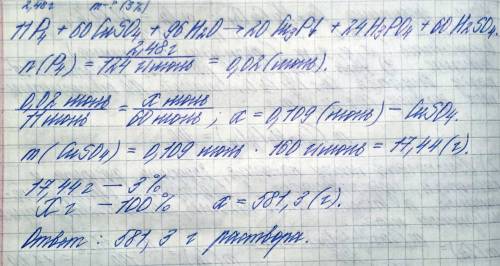 2,48г m-? (3%)
11P₄ + 60CuSO₄ + 96H₂O → 20Cu₃P + 24H₃PO₄ + 60H₂SO₄.
n(P₄) = 2,48г / 124 г/моль = 0,02 (моль).
0,02 моль / 11 моль = x моль / 60 моль, x = 0,109 (моль) - CuSO₄.
m(CuSO₄) = 0,109 моль · 160 г/моль = 17,44 (г).
17,44г — 3%
X г — 100% x = 581,3 (г).
Ответ: 581,3 г раствора.